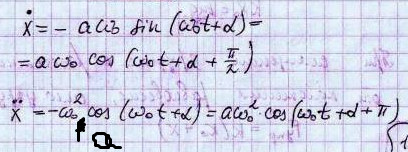 ẋ = - aω₀ sin (ω₀t+α) =
= a ω₀ cos (ω₀t+α + π/2)
ẍ = -ω₀² cos (ω₀t+α) = aω₀² cos (ω₀t+α+π)
a